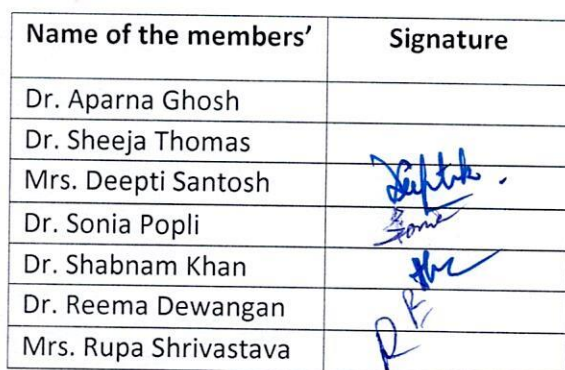 Name of the members’ Signature
Dr. Aparna Ghosh
Dr. Sheeja Thomas
Mrs. Deepti Santosh
Dr. Sonia Popli
Dr. Shabnam Khan
Dr. Reema Dewangan
Mrs. Rupa Shrivastava